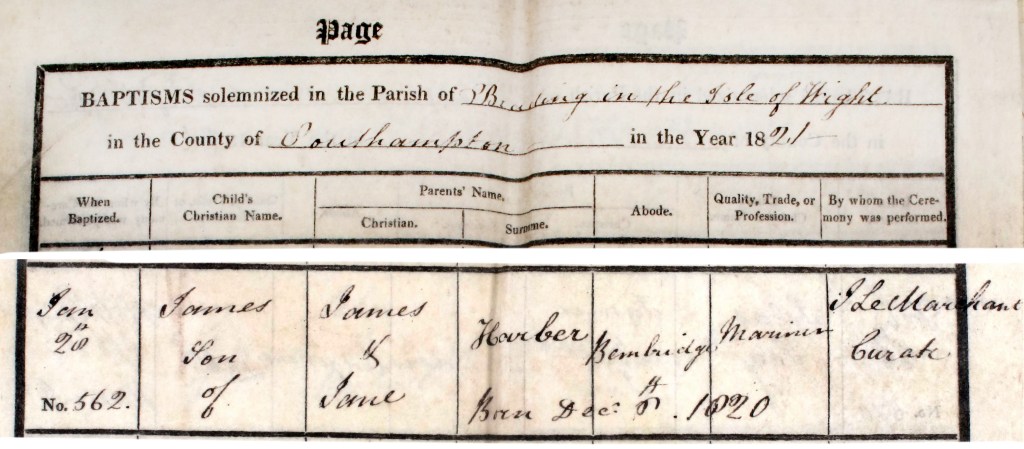 Page
BAPTISMS solemnized in the Parish of Brading in the Isle of Wight
in the County of Southampton in the Year 1821
When Baptized.
Child's Christian Name.
Parents' Name.
Christian.
Surname.
Abode.
Quality, Trade, or Profession.
By whom the Ceremony was performed.
Jan
28th
No. 562.
James
Son
of
James
&
Jane
Harber
Bembridge
Mariner
J LeMarchant
Curate
Born Dec: 8th. 1820